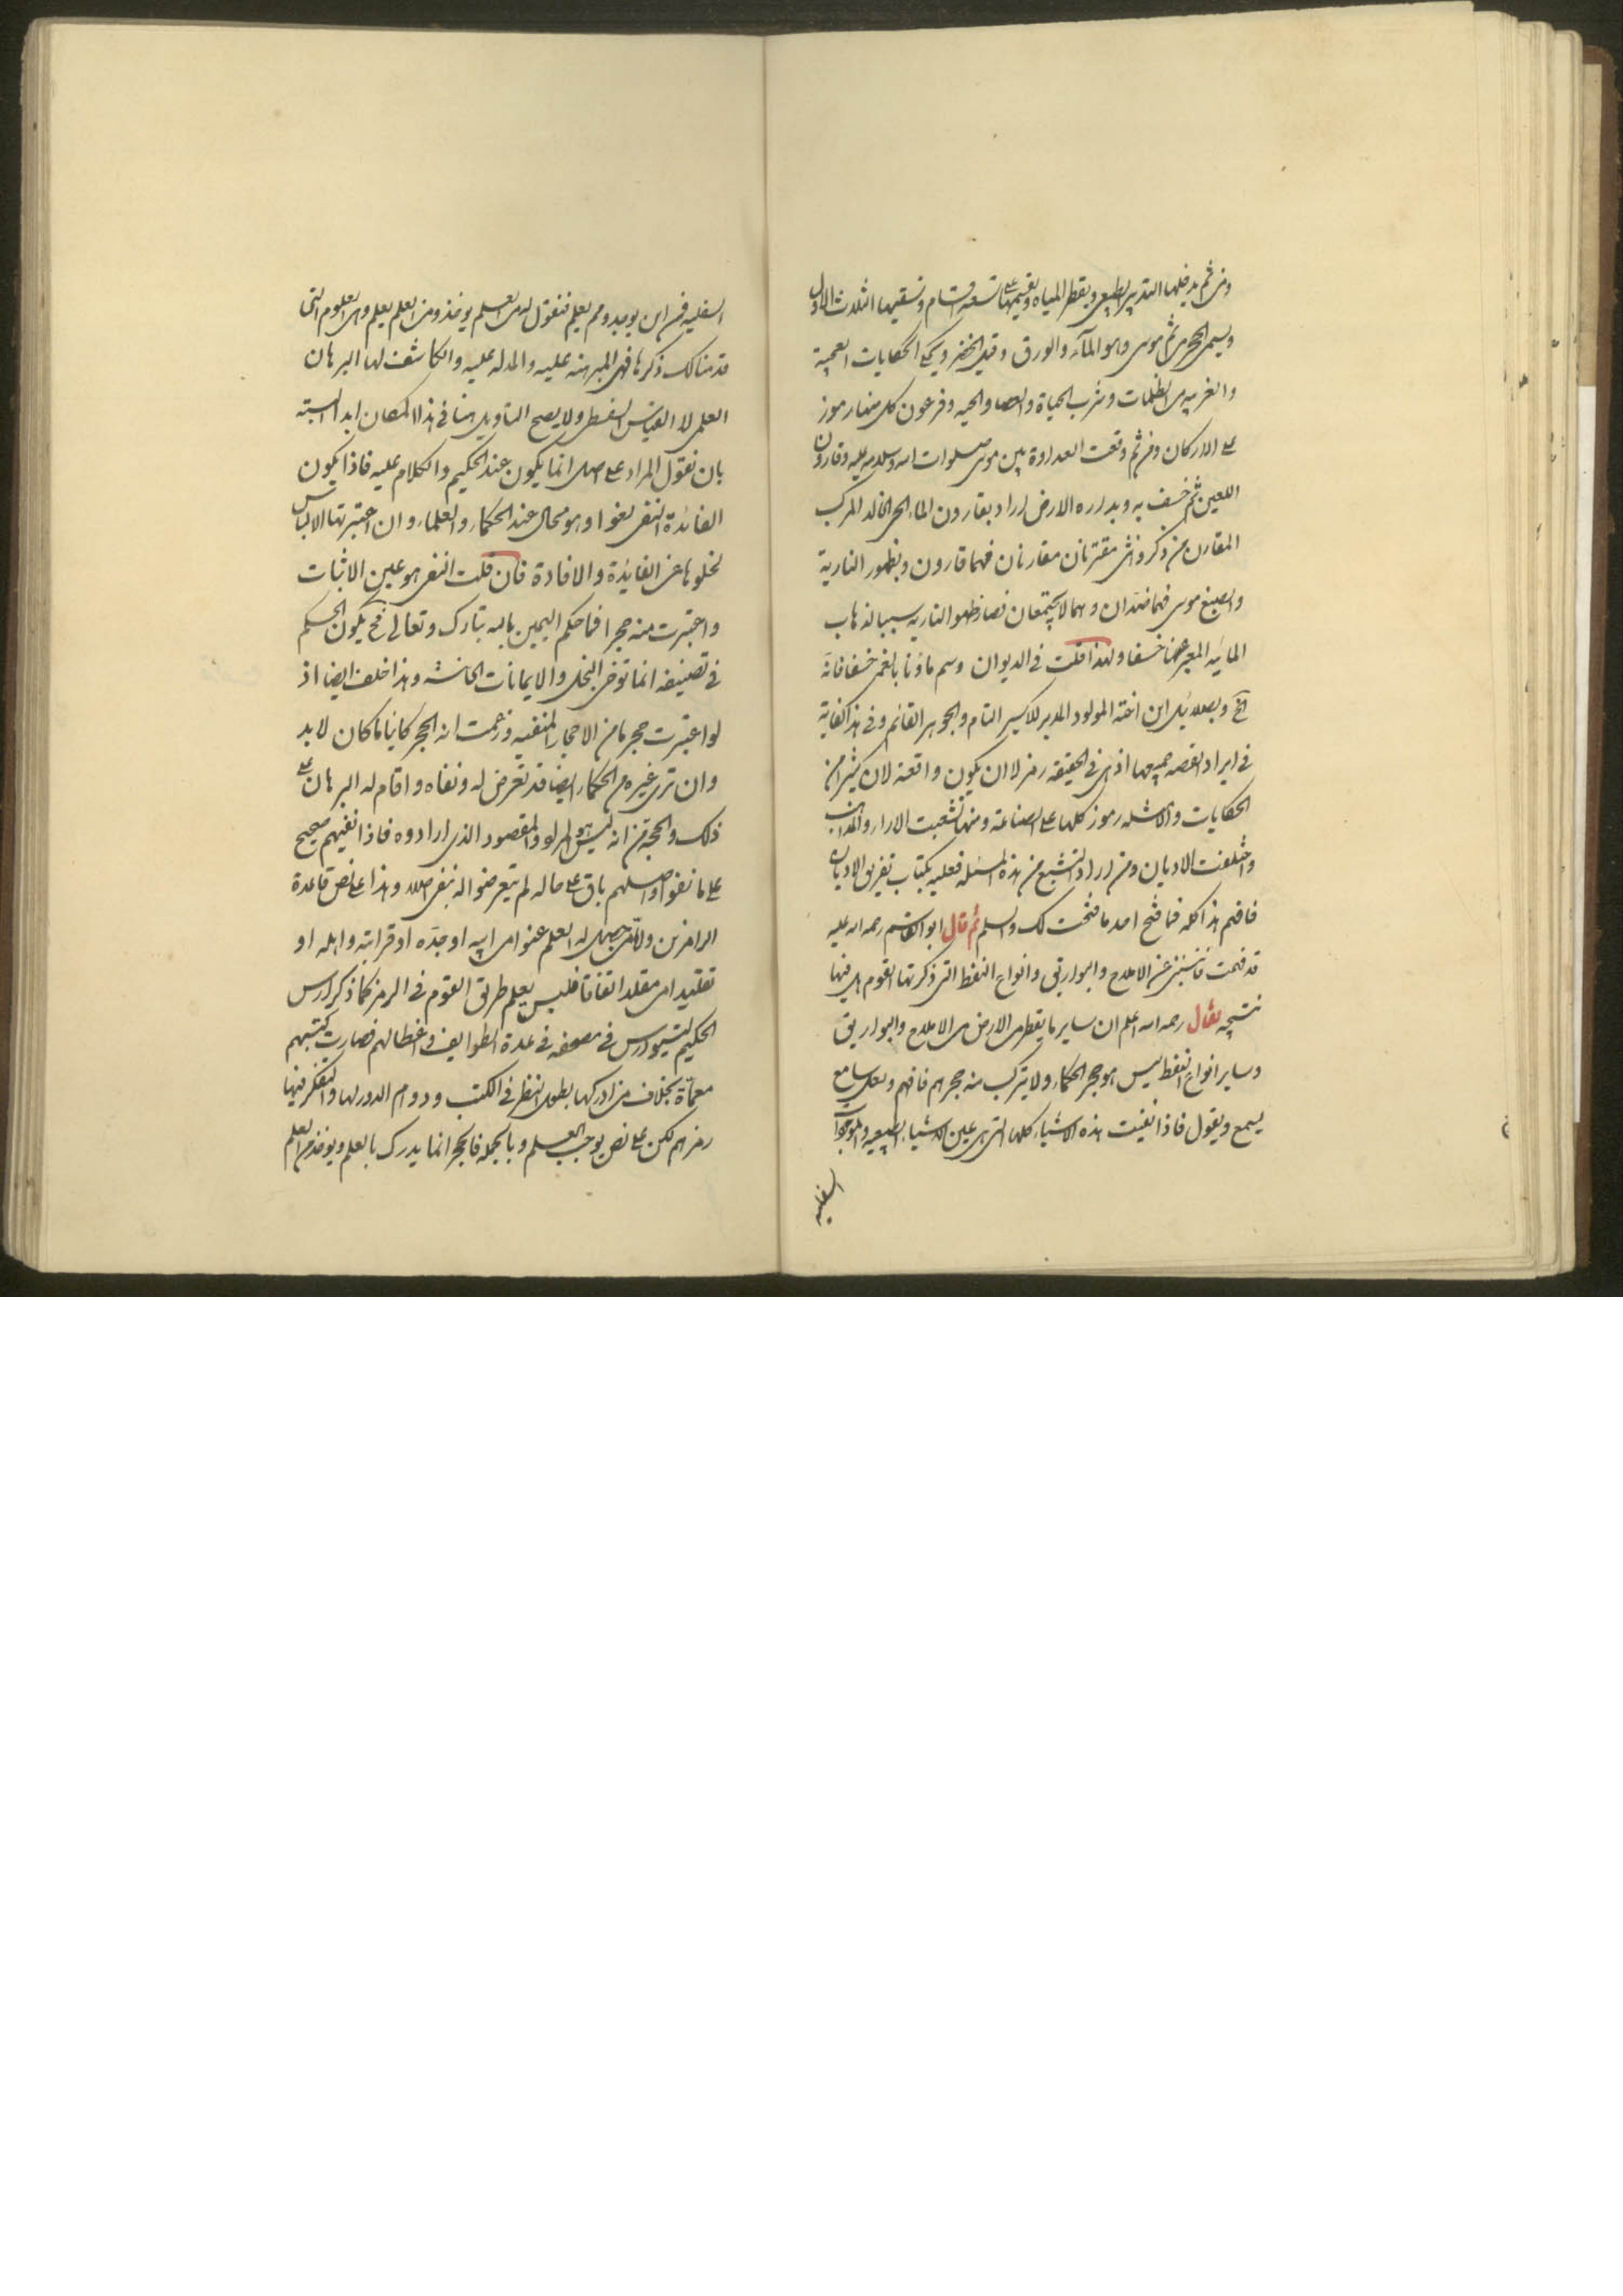 ومن ثم يدخلها التدبير الطبيعي ويقطر المياه ويقسمها على تسعة اقسام ويسقيها الثلاث الاول
ويسمى الحجر من ثم موسى وهو الماء والورق وقيل الخضر ويحكى الحكايات العجيبة
والغريبة من الظلمات وشرب الحياة والعصا والحية وفرعون كل منها رموز
على الاركان ومن ثم وقعت العداوة بين موسى صلوات الله وسلامه عليه وقارون
اللعين ثم خسف به وبداره الارض اراد بقارون الماء الحجر الخالد المركب
المقارن من ذكر وانثى مقترنان مقارنان فهما قارون وبظهور النارية
والصبغ موسى فهما ضدان وهما لا يجتمعان فصار ظهور النارية سببا لذهاب
المائية المعبر عنها خسفا ولهذا قلت في الديوان وسم ماؤنا بالغمر خسفا فانه
اخ وبعلا بل ابن اخته المولود المدبر للاكسير التام والجوهر القائم وفي هذا كفاية
في ايراد القصة جميعها اذ هي في الحقيقة رمز لا ان يكون واقعة لان كثيرا من
الحكايات والامثلة رموز كلها على الصناعة ومنها تشعبت الاراء والمذاهب
واختلفت الاديان ومن اراد التشبع من هذه المسئلة فعليه بكتاب تفريق الاديان
فافهم هذا كله فما فتح احد ما فتحت لك والسلم ثم قال ابو القاسم رحمه الله عليه
قد فهمت فاخبرني عن الاملاح والبوارق وانواع النفط التي ذكرتها القوم هل فيها
نتيجه فقال رحمه الله اعلم ان ساير ما يقطر من الارض من الاملاح والبواريق
وساير انواع النفط ليس هو حجر الحكماء ولا يتركب منه حجرهم فافهم ولعل سامع
يسمع ويقول فاذا نفيت هذه الاشياء كلها التي هي عين الاشياء الطبيعيه والموجودات
السفلية
السفلية فمن اين يوجد ومم يعلم فنقول له من العلم يوخذ ومن العلم يعلم وهي العلوم التي
قدمنا لك ذكرها فهي المبرهنه عليه والمدله عليه والكاشف لها البرهان
العلمي لا القياس السفسطي ولا يصح التاويل هنا في هذا المكان ابدا البتة
بان نقول المراد على اصل انما يكون عند الحكيم والكلام عليه فاذا يكون
الفائدة النفي لغوا وهو محال عند الحكماء والعلماء وان اعتبرتها الالباس
لخلوها عن الفائدة والافادة فان قلت النفي هو عين الاثبات
واعتبرت منه حجرا فما حكم اليمين بالله تبارك وتعالى فح يكون الحكيم
في تصنيفه انما توخى البخل والايمانات الحانثة وهذا خلف ايضا اذ
لو اعتبرت حجرا ما من الاحجار المنفيه وزعمت انه الحجر كاينا ما كان لا بد
وان ترى غيره من الحكماء ايضا قد تعرض له ونفاه واقام له البرهان على
ذلك والحجة من انه ليس هو المراد والمقصود الذي ارادوه فاذا نفيهم صحيح
على ما نفوا واصلهم باق على حاله لم يتعرضوا له بنفي اصلا وهذا على نص قاعدة
الرامزين ولا من حصل له العلم عنوا من ابيه او جده او قرابته واهله او
تقليدا من مقلد اتفاقا فليس يعلم طريق القوم في الرمز كما ذكر ارس
الحكيم لتيودرس في مصحفه في عدة الطوايف واغطالهم فصارت كتبهم
معماة بخلاف من ادركها بطول النظر في الكتب ودوام الدور لها والتفكر فيها
رمزهم لكن على نص يوجب العلم وبالجملة فالحجر انما يدرك بالعلم ويوخذ من العلم